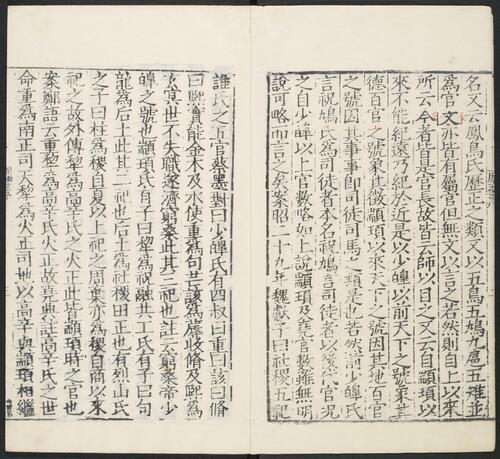 名又云鳳鳥氏歷正之類又以五鳥五鳩九扈五雉並
為官文亦皆有屬官但無文以言之若然則自上以來
所云今者皆是官長故皆云師以目之又云自顓頊以
來不能紀遠乃紀於近是以少皥以前天下之號象其
德百官之號象其徵顓頊以來天下之號因其地百官
之號因其事事即司徒司馬之類是也若然前少皥氏
言祝鳩氏為司徒者本名祝鳩言司徒者以後代官況
之自少皥以上官數略如上說顓頊及堯官數雖無明
說可略而言之矣案昭二十九年魏獻子曰社稷五祀
誰氏之五官蔡墨對曰少皥氏有四叔曰重曰該曰脩
曰熙實能金木及水使重為句芒該為蓐收脩及熙為
玄冥世不失職遂濟窮桑此其三祀也註云窮桑帝少
皥之號也顓頊氏有子曰黎為祝融共工氏有子曰句
龍為后土此其二祀也后土為社稷田正也有烈山氏
之子曰柱為稷自夏以上祀之周棄亦為稷自商以來
祀之故外傳犂為高辛氏之火正此皆顓頊時之官也
案鄭語云重黎為高辛氏火正故堯典註高辛氏之世
命重為南正司天犂為火正司地以高辛與顓頊相繼